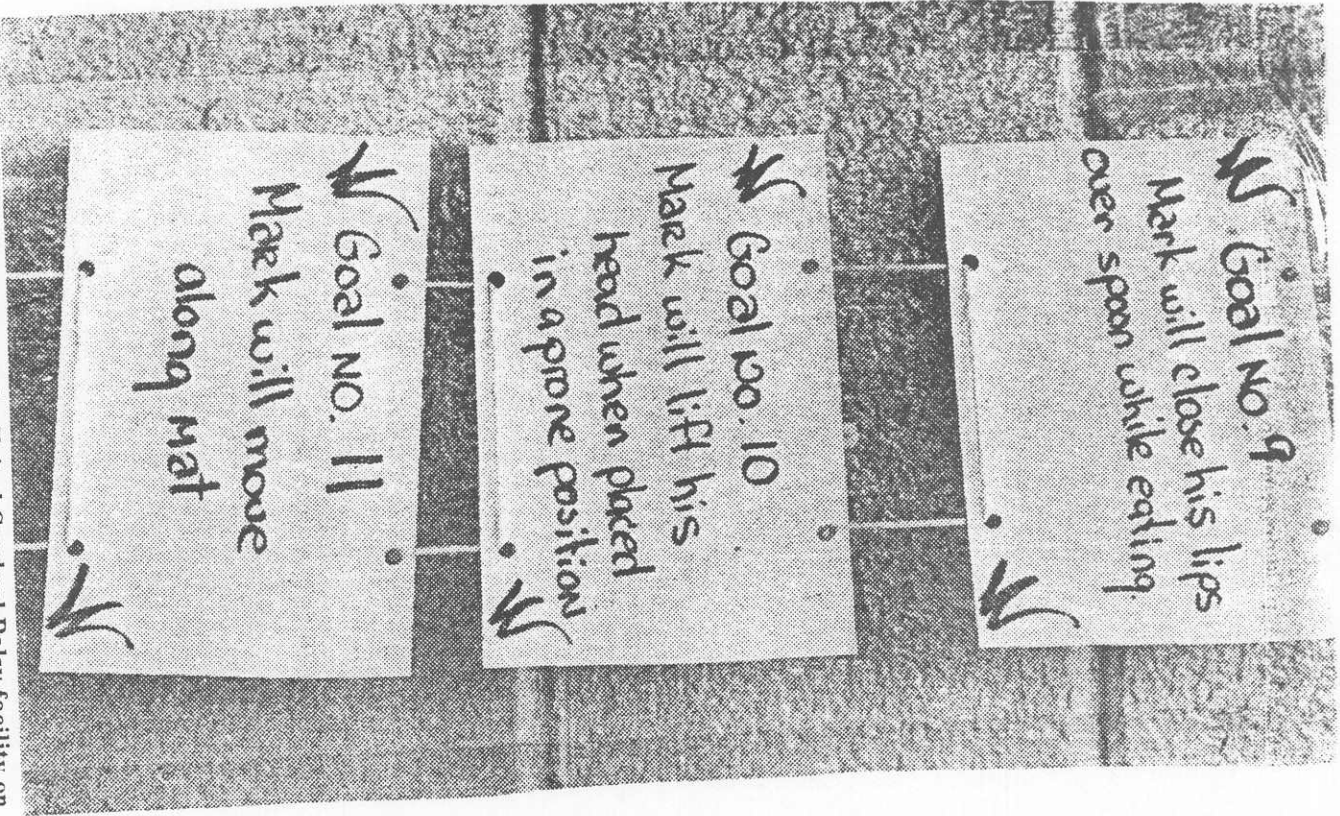 Goal No. 9
Mark will close his lips
over spoon while eating.
Goal No. 10
Mark will lift his
head when placed
in a prone position
Goal No. 11
Mark will move
along Mat
facility on